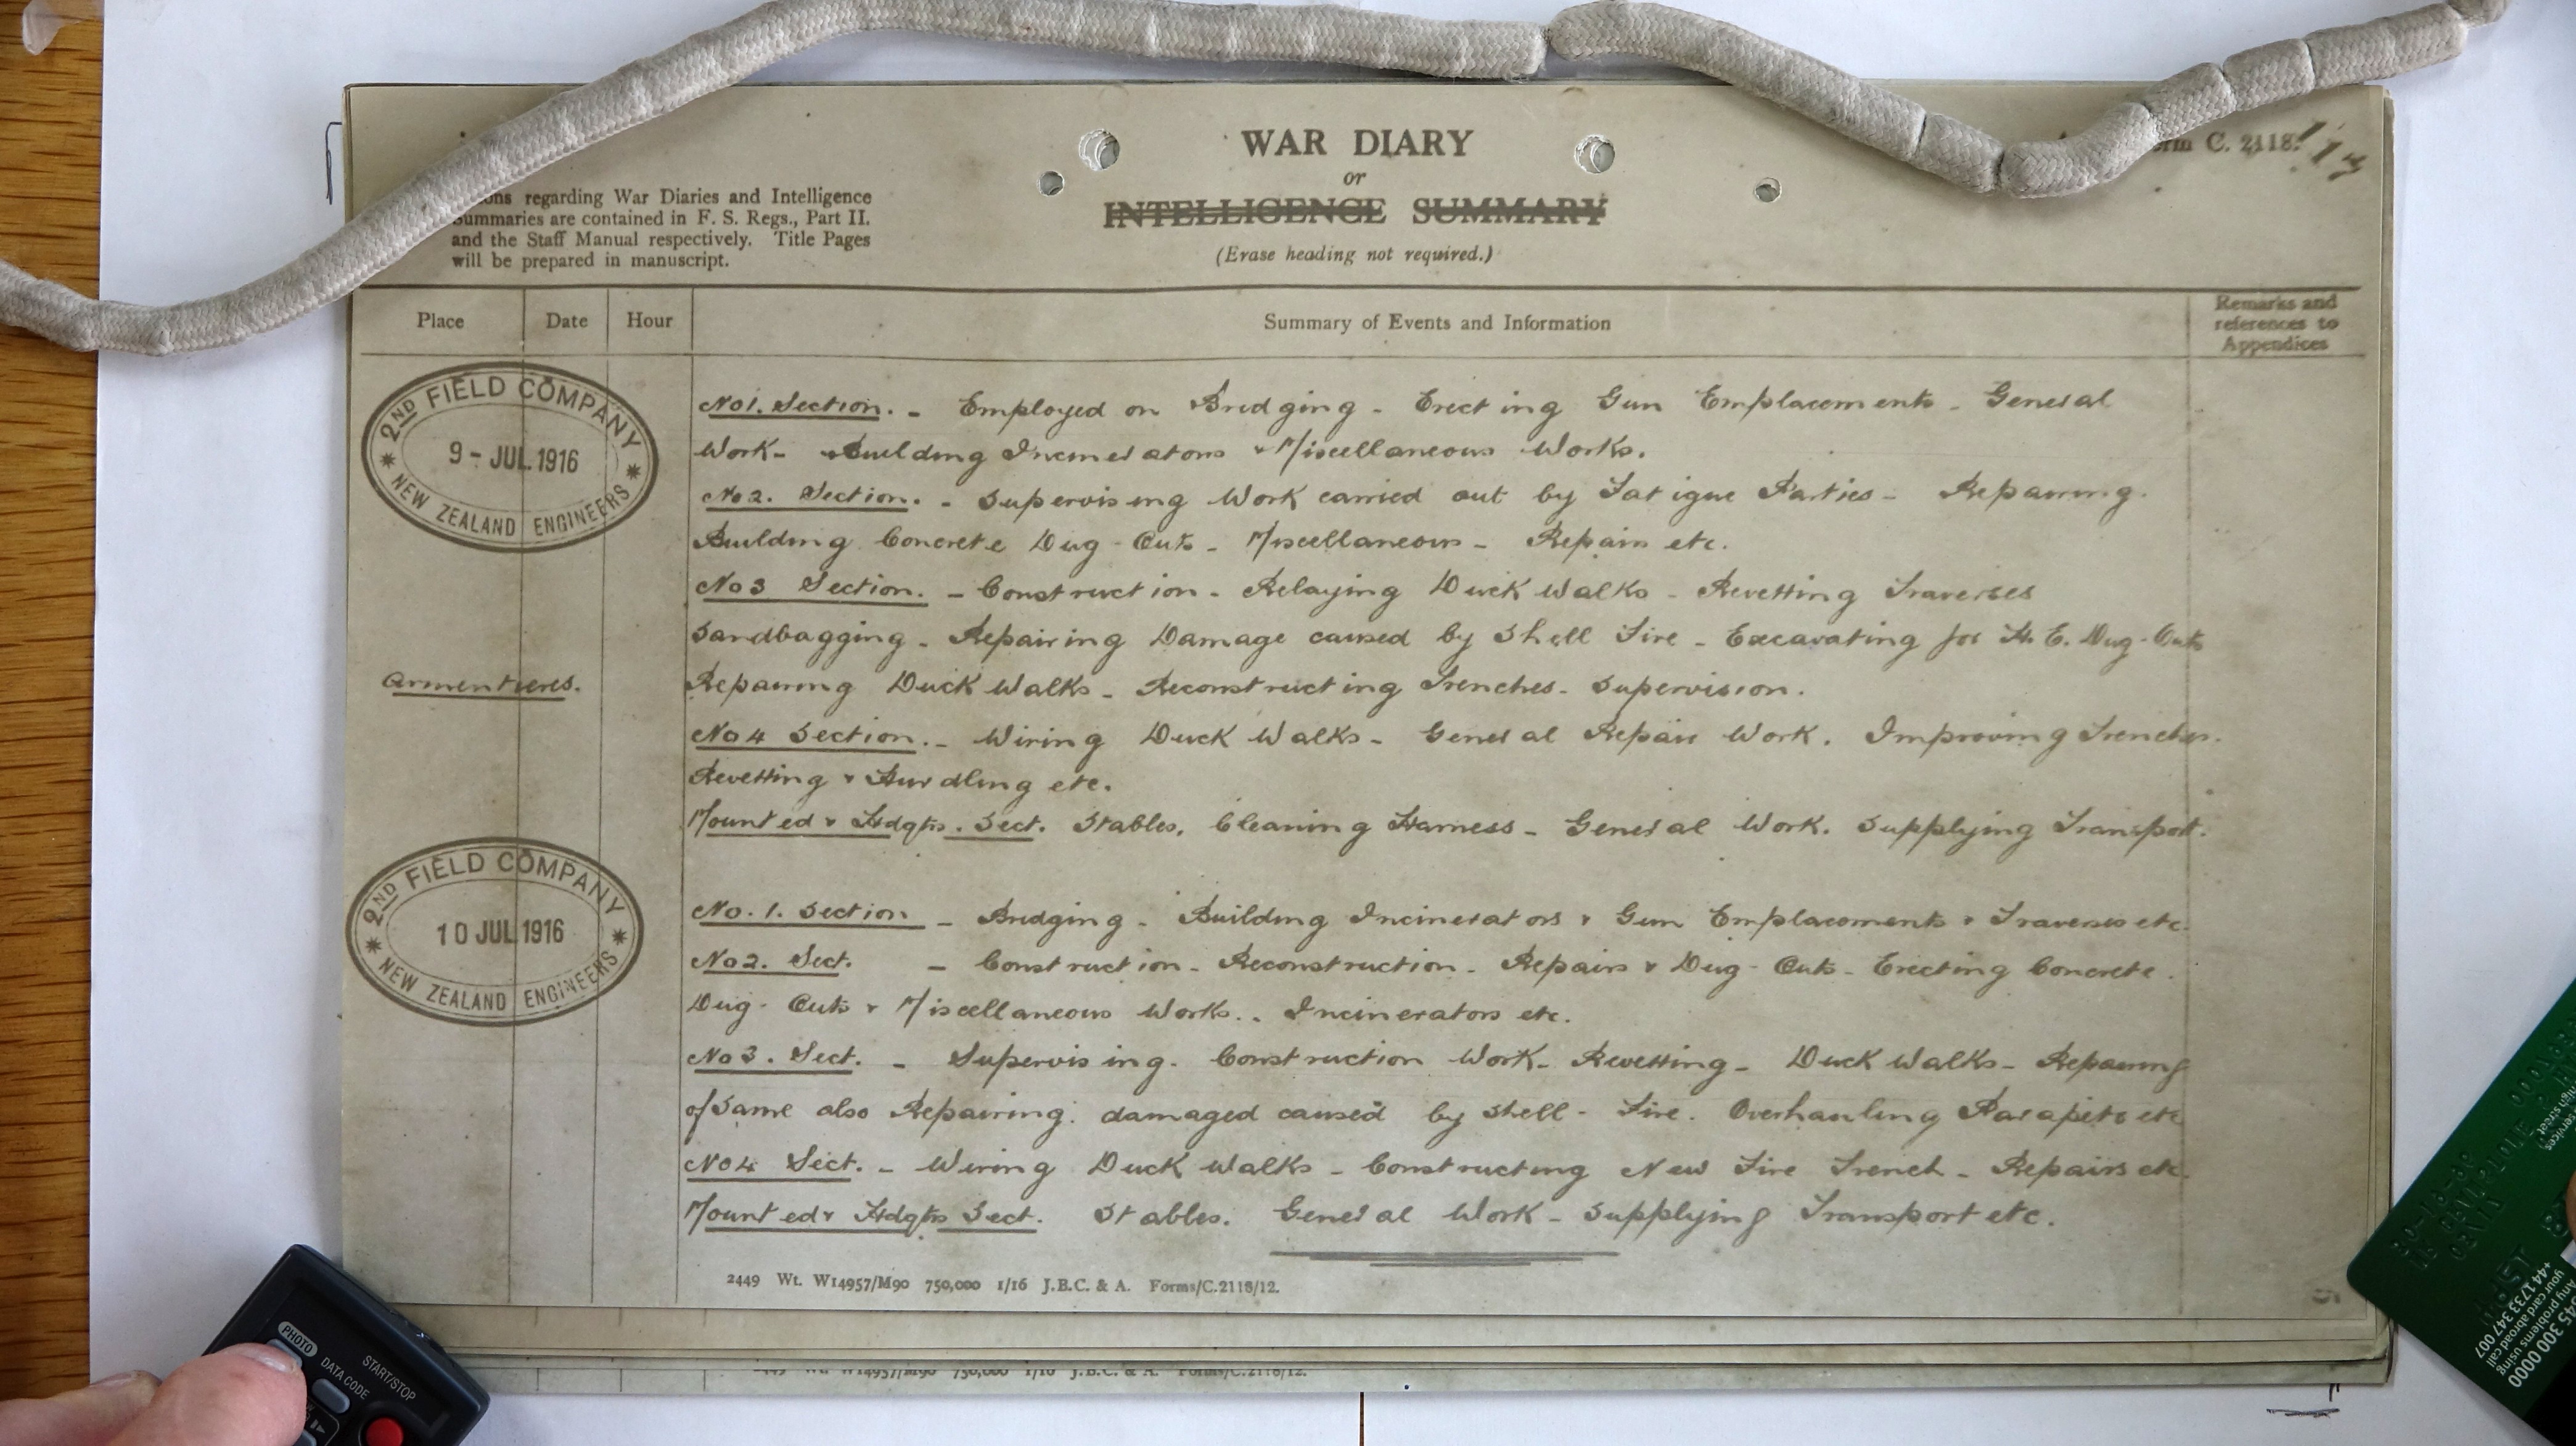 WAR DIARY
or
INTELLIGENCE SUMMARY
(Erase heading not required.)
C. 2118.
regarding War Diaries and Intelligence
Summaries are contained in F. S. Regs., Part II.
and the Staff Manual respectively. Title Pages
will be prepared in manuscript.
Place Date Hour Summary of Events and Information Remarks and references to Appendices
2ND FIELD COMPANY
9 - JUL 1916
NEW ZEALAND ENGINEERS
No1. Section. - Employed on Bridging - Erecting Gun Emplacements - General
Work - Building Incinerators & Miscellaneous Works.
No2. Section. - Supervising Work carried out by Fatigue Parties - Repairing.
Building Concrete Dug-Outs - Miscellaneous - Repairs etc.
No3 Section. - Construction - Relaying Duck Walks - Revetting Traverses
Sandbagging - Repairing Damage caused by Shell Fire - Excavating for H.E. Dug-Outs
Armentieres.
Repairing Duck Walks - Reconstructing Trenches - Supervision.
No4 Section. - Wiring Duck Walks - General Repair Work. Improving Trenches.
Revetting & Hurdling etc.
Mounted & Hdqtrs. Sect. Stables. Cleaning Harness - General Work. Supplying Transport.
2ND FIELD COMPANY
10 JUL 1916
NEW ZEALAND ENGINEERS
No. 1. Section - Bridging - Building Incinerators & Gun Emplacements & Traverses etc.
No2. Sect. - Construction - Reconstruction - Repairs & Dug-Outs - Erecting Concrete.
Dug-Outs & Miscellaneous Works.. Incinerators etc.
No3. Sect. - Supervising. Construction Work - Revetting - Duck Walks - Repairing
of Same also Repairing. damaged caused by Shell-Fire. Overhauling Parapets etc
No4 Sect. - Wiring Duck Walks - Constructing New Fire Trench - Repairs etc.
Mounted & Hdqtrs Sect. Stables. General Work - Supplying Transport etc.
2449 Wt. W14957/M90 750,000 1/16 J.B.C. & A. Forms/C.2118/12.
2449 Wt. W14957/M90 750,000 1/16 J.B.C. & A. Forms/C.2118/12.
PHOTO
DATA CODE
START/STOP